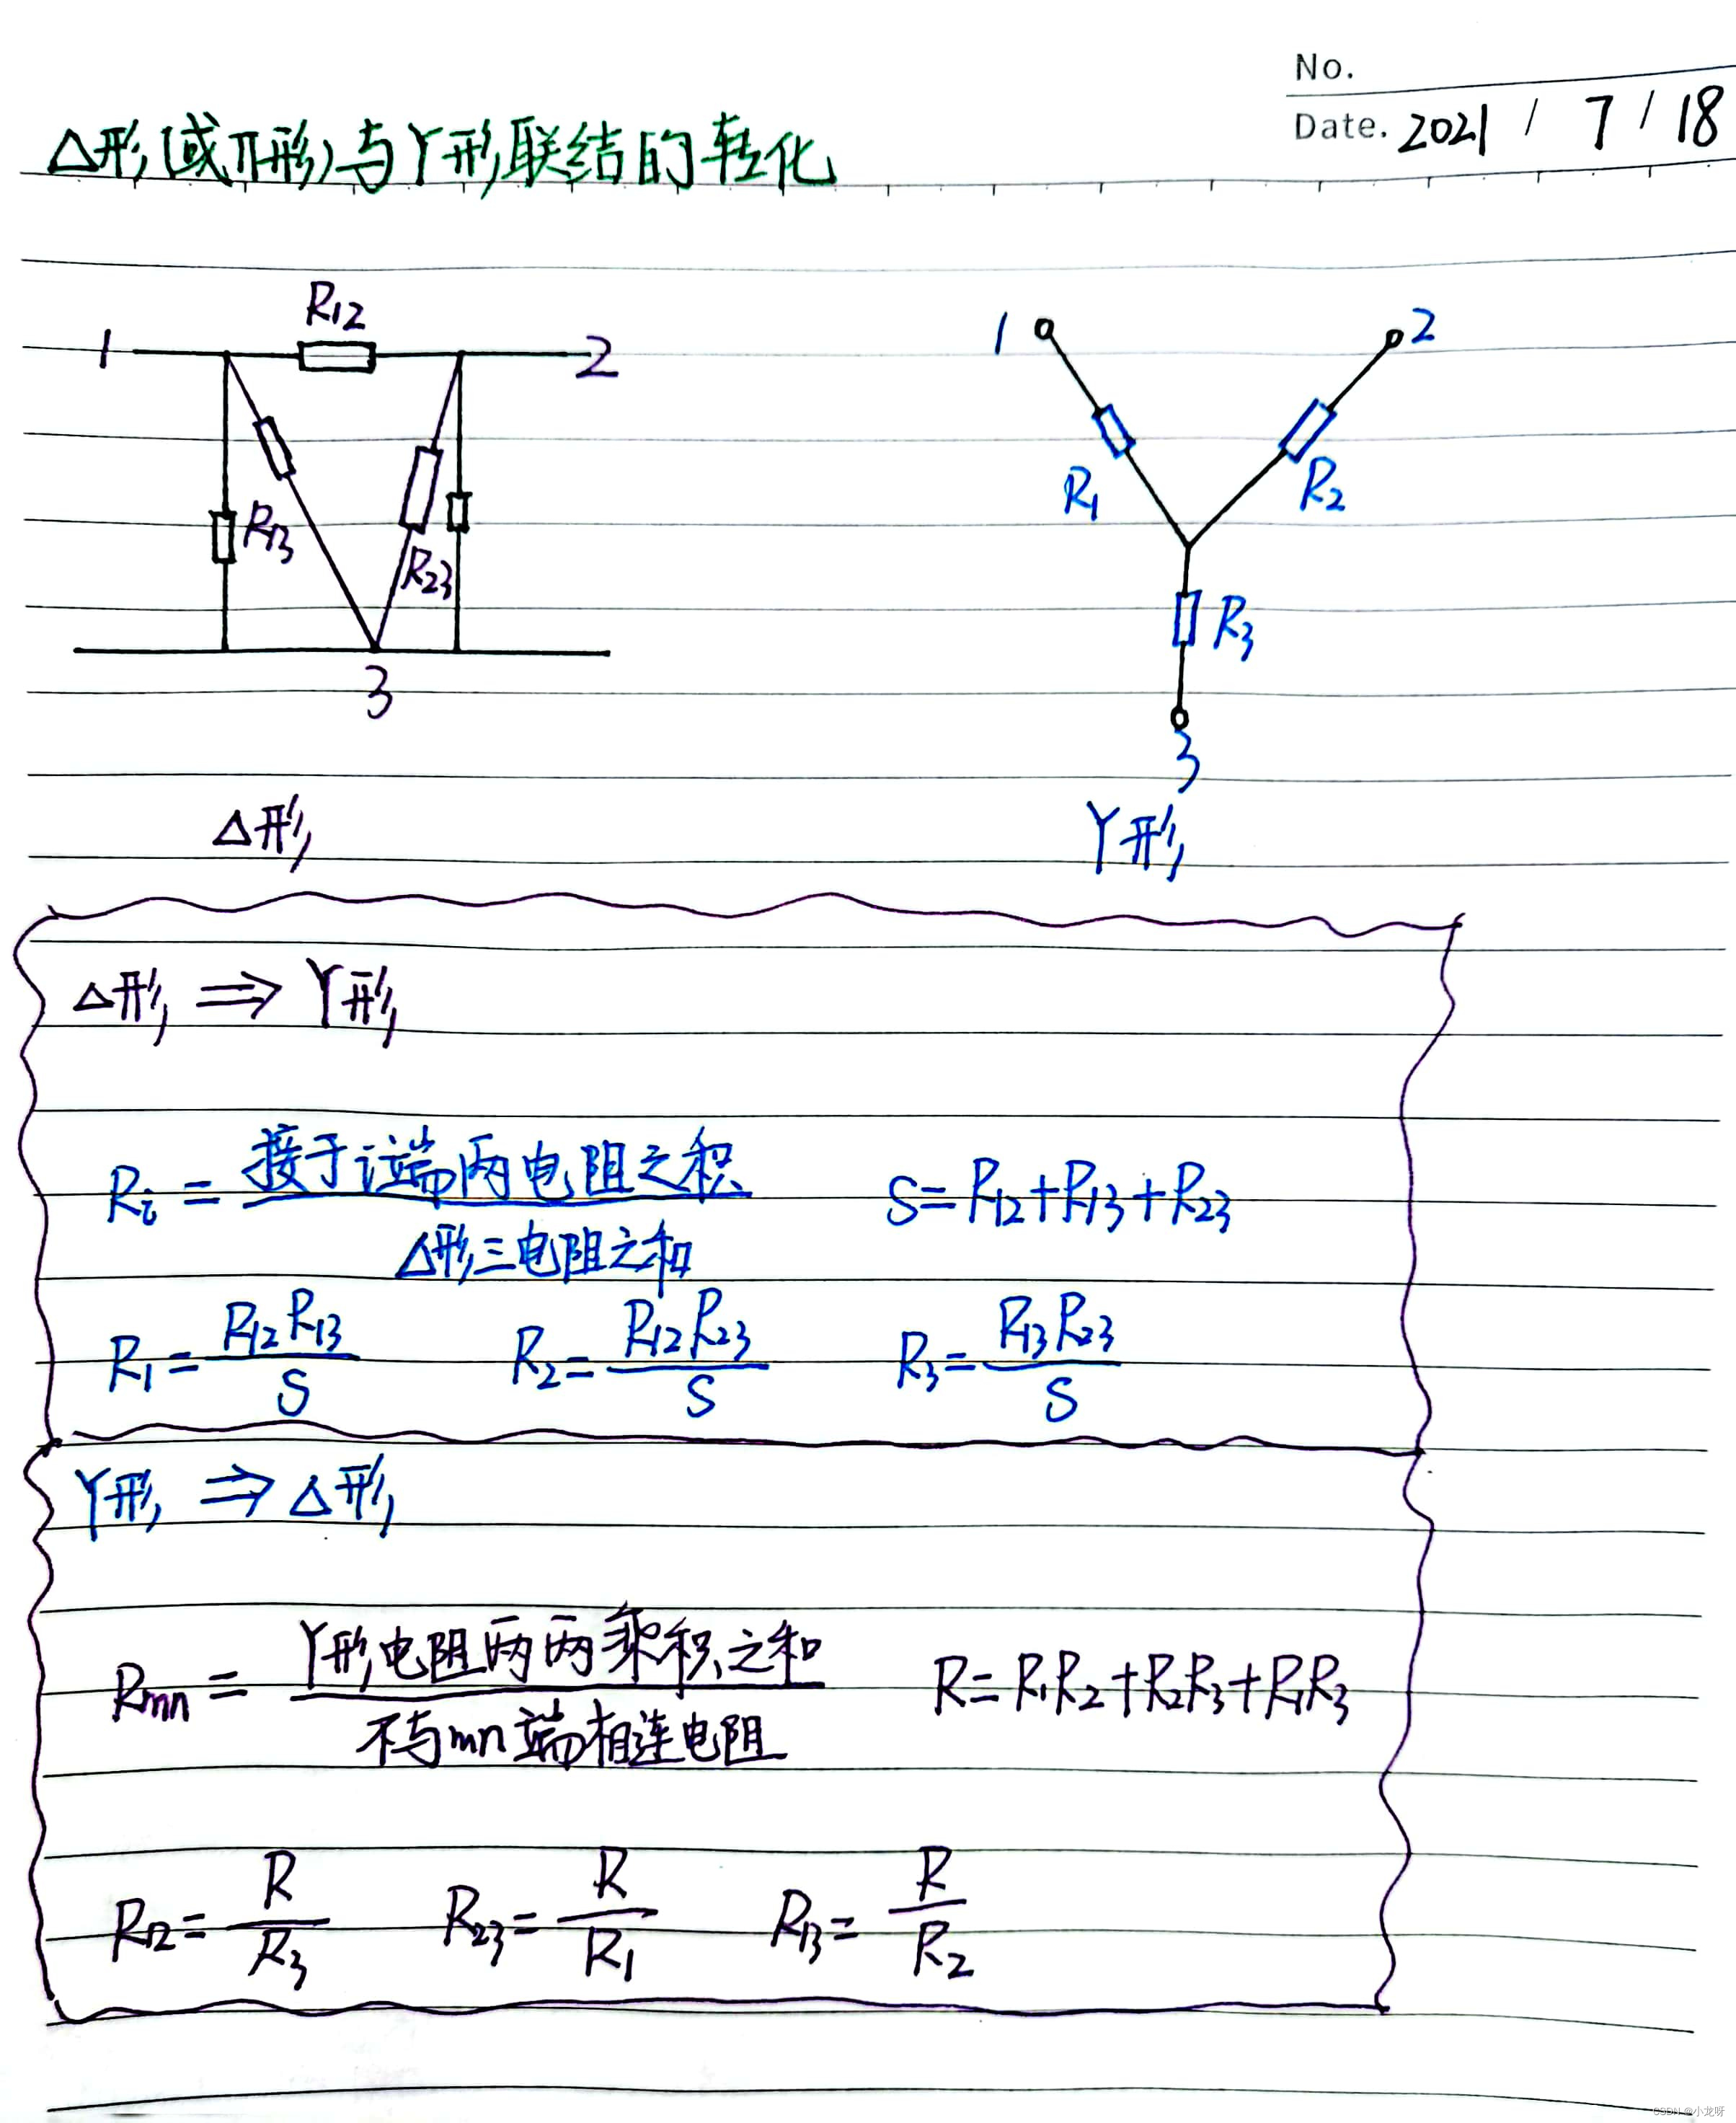 No.
Date. 2021 / 7 / 18
△形(或π形)与Y形联结的转化
R12
1 2
R13
R23
3
1 2
R1 R2
R3
3
△形 Y形
△形 ⇒ Y形
Ri = 接于i端两电阻之积 / △形三电阻之和 S=R12+R13+R23
R1 = R12R13 / S R2 = R12R23 / S R3 = R13R23 / S
Y形 ⇒ △形
Rmn = Y形电阻两两乘积之和 / 不与mn端相连电阻 R=R1R2+R2R3+R1R3
R12 = R / R3 R23 = R / R1 R13 = R / R2
CSDN @小龙呀